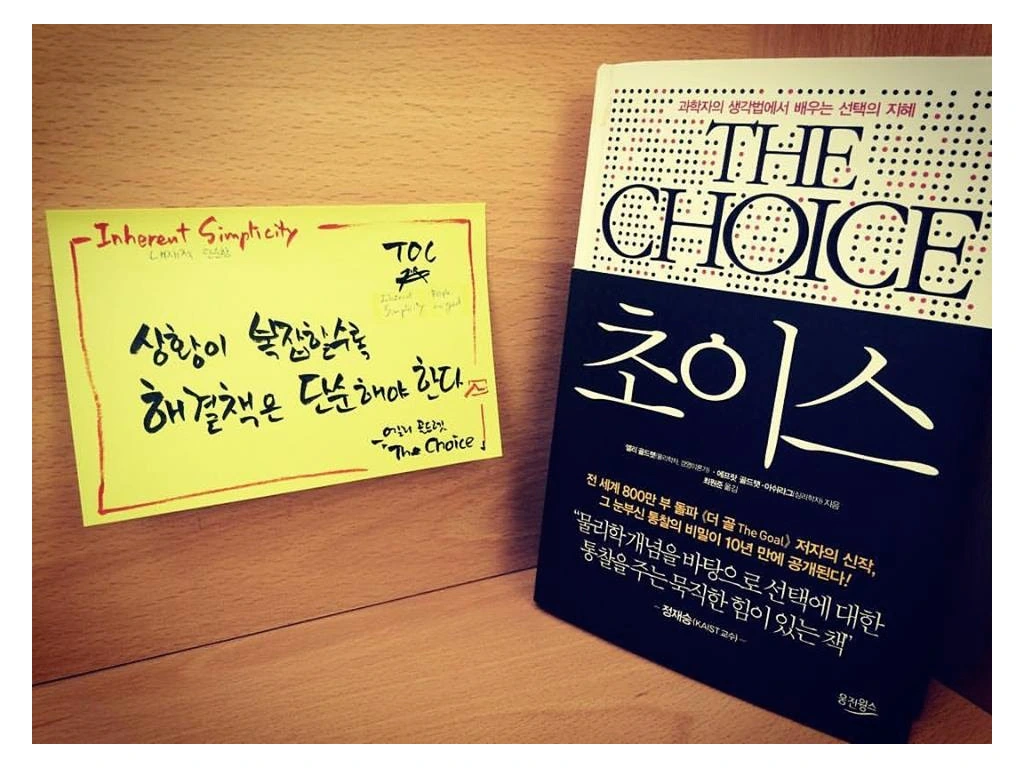 Inherent Simplicity
내재적 단순함
TOC
Inherent
Simplicity
People
are good
상황이 복잡할수록
해결책은 단순해야 한다
엘리 골드렛
The Choice
과학자의 생각법에서 배우는 선택의 지혜
THE
CHOICE
초이스
엘리 골드랫(물리학자, 경영이론가)·에프랏 골드랫-아쉬라그(심리학자) 지음
최원준 옮김
전 세계 800만 부 돌파 《더 골The Goal》 저자의 신작,
그 눈부신 통찰의 비밀이 10년 만에 공개된다!
“물리학개념을 바탕으로 선택에 대한
통찰을 주는 묵직한 힘이 있는 책”
- 정재승(KAIST 교수) -
웅진윙스